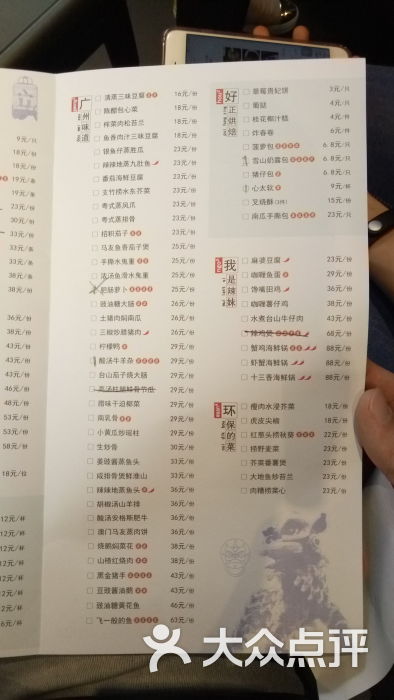 立
9元/只
18元/份
18元/份
19元/条
23元/条
19元/条
33元/条
38元/份
38元/份
36元/份
38元/份
43元/份
43元/份
46元/份
48元/份
53元/份
53元/份
58元/份
18元/位
12元/杯
12元/杯
12元/杯
12元/杯
12元/杯
6元/杯
广州味道
清蒸三味豆腐 16元/份
陈醋包心菜 18元/份
榨菜肉松苦兰 18元/份
鱼香肉汁三味豆腐 18元/份
银鱼仔蒸胜瓜 23元/份
辣辣地蒸九肚鱼 23元/份
番茄海鲜豆腐 23元/份
支竹捞水东芥菜 23元/份
粤式蒸凤爪 23元/份
粤式蒸排骨 23元/份
招积茄子 25元/份
马友鱼香茄子煲 25元/份
手撕水鬼重 25元/份
浓汤鱼滑水鬼重 25元/份
肥肠萝卜 25元/份
豉油糖大肠 25元/份
土猪肉焖南瓜 25元/份
三椒炒腊猪肉 25元/份
柠檬鸭 29元/份
酸汤牛羊杂 29元/份
台山茄子烧大肠 29元/份
29元/份
腊味干迫椰菜 29元/份
南乳骨 29元/份
小黄瓜炒瑶柱 29元/份
生炒骨 30元/份
姜豉酱蒸鱼头 33元/份
咸排骨煲鲜淮山 33元/份
辣辣地蒸鱼头 36元/份
胡椒汤山羊排 36元/份
酸汤安格斯肥牛 36元/份
澳门马友蒸肉饼 36元/份
烧鹅焖菜花 38元/份
山楂红烧肉 38元/份
黑金猪手 43元/份
豆豉酱油鹅 43元/份
豉油糖黄花鱼 46元/份
飞一般的鱼 63元/份
好正烘焙
草莓贵妃饼 3元/只
葡挞 4元/只
桂花椰汁糕 4元/份
炸春卷 5元/份
菠萝包 6.8元/只
雪山奶露包 6.8元/只
猪仔包 6.8元/只
心太软 9元/杯
叉烧酥(3件) 15元/份
南瓜手撕包 23元/只
我是辣妹
麻婆豆腐 23元/份
咖喱鱼蛋 23元/份
馋嘴田鸡 36元/份
咖喱薯仔鸡 38元/份
水煮台山牛仔肉 43元/份
辣鸡煲 68元/份
蟹鸡海鲜锅 88元/份
虾蟹海鲜锅 88元/份
十三香海鲜锅 88元/份
环保的菜
瘦肉水浸芥菜 18元/份
虎皮尖椒 18元/份
红葱头捞秋葵 23元/份
捞野麦菜 23元/份
芥菜番薯煲 23元/份
大地鱼炒苦兰 23元/份
肉糟捞菜心 23元/份
大众点评